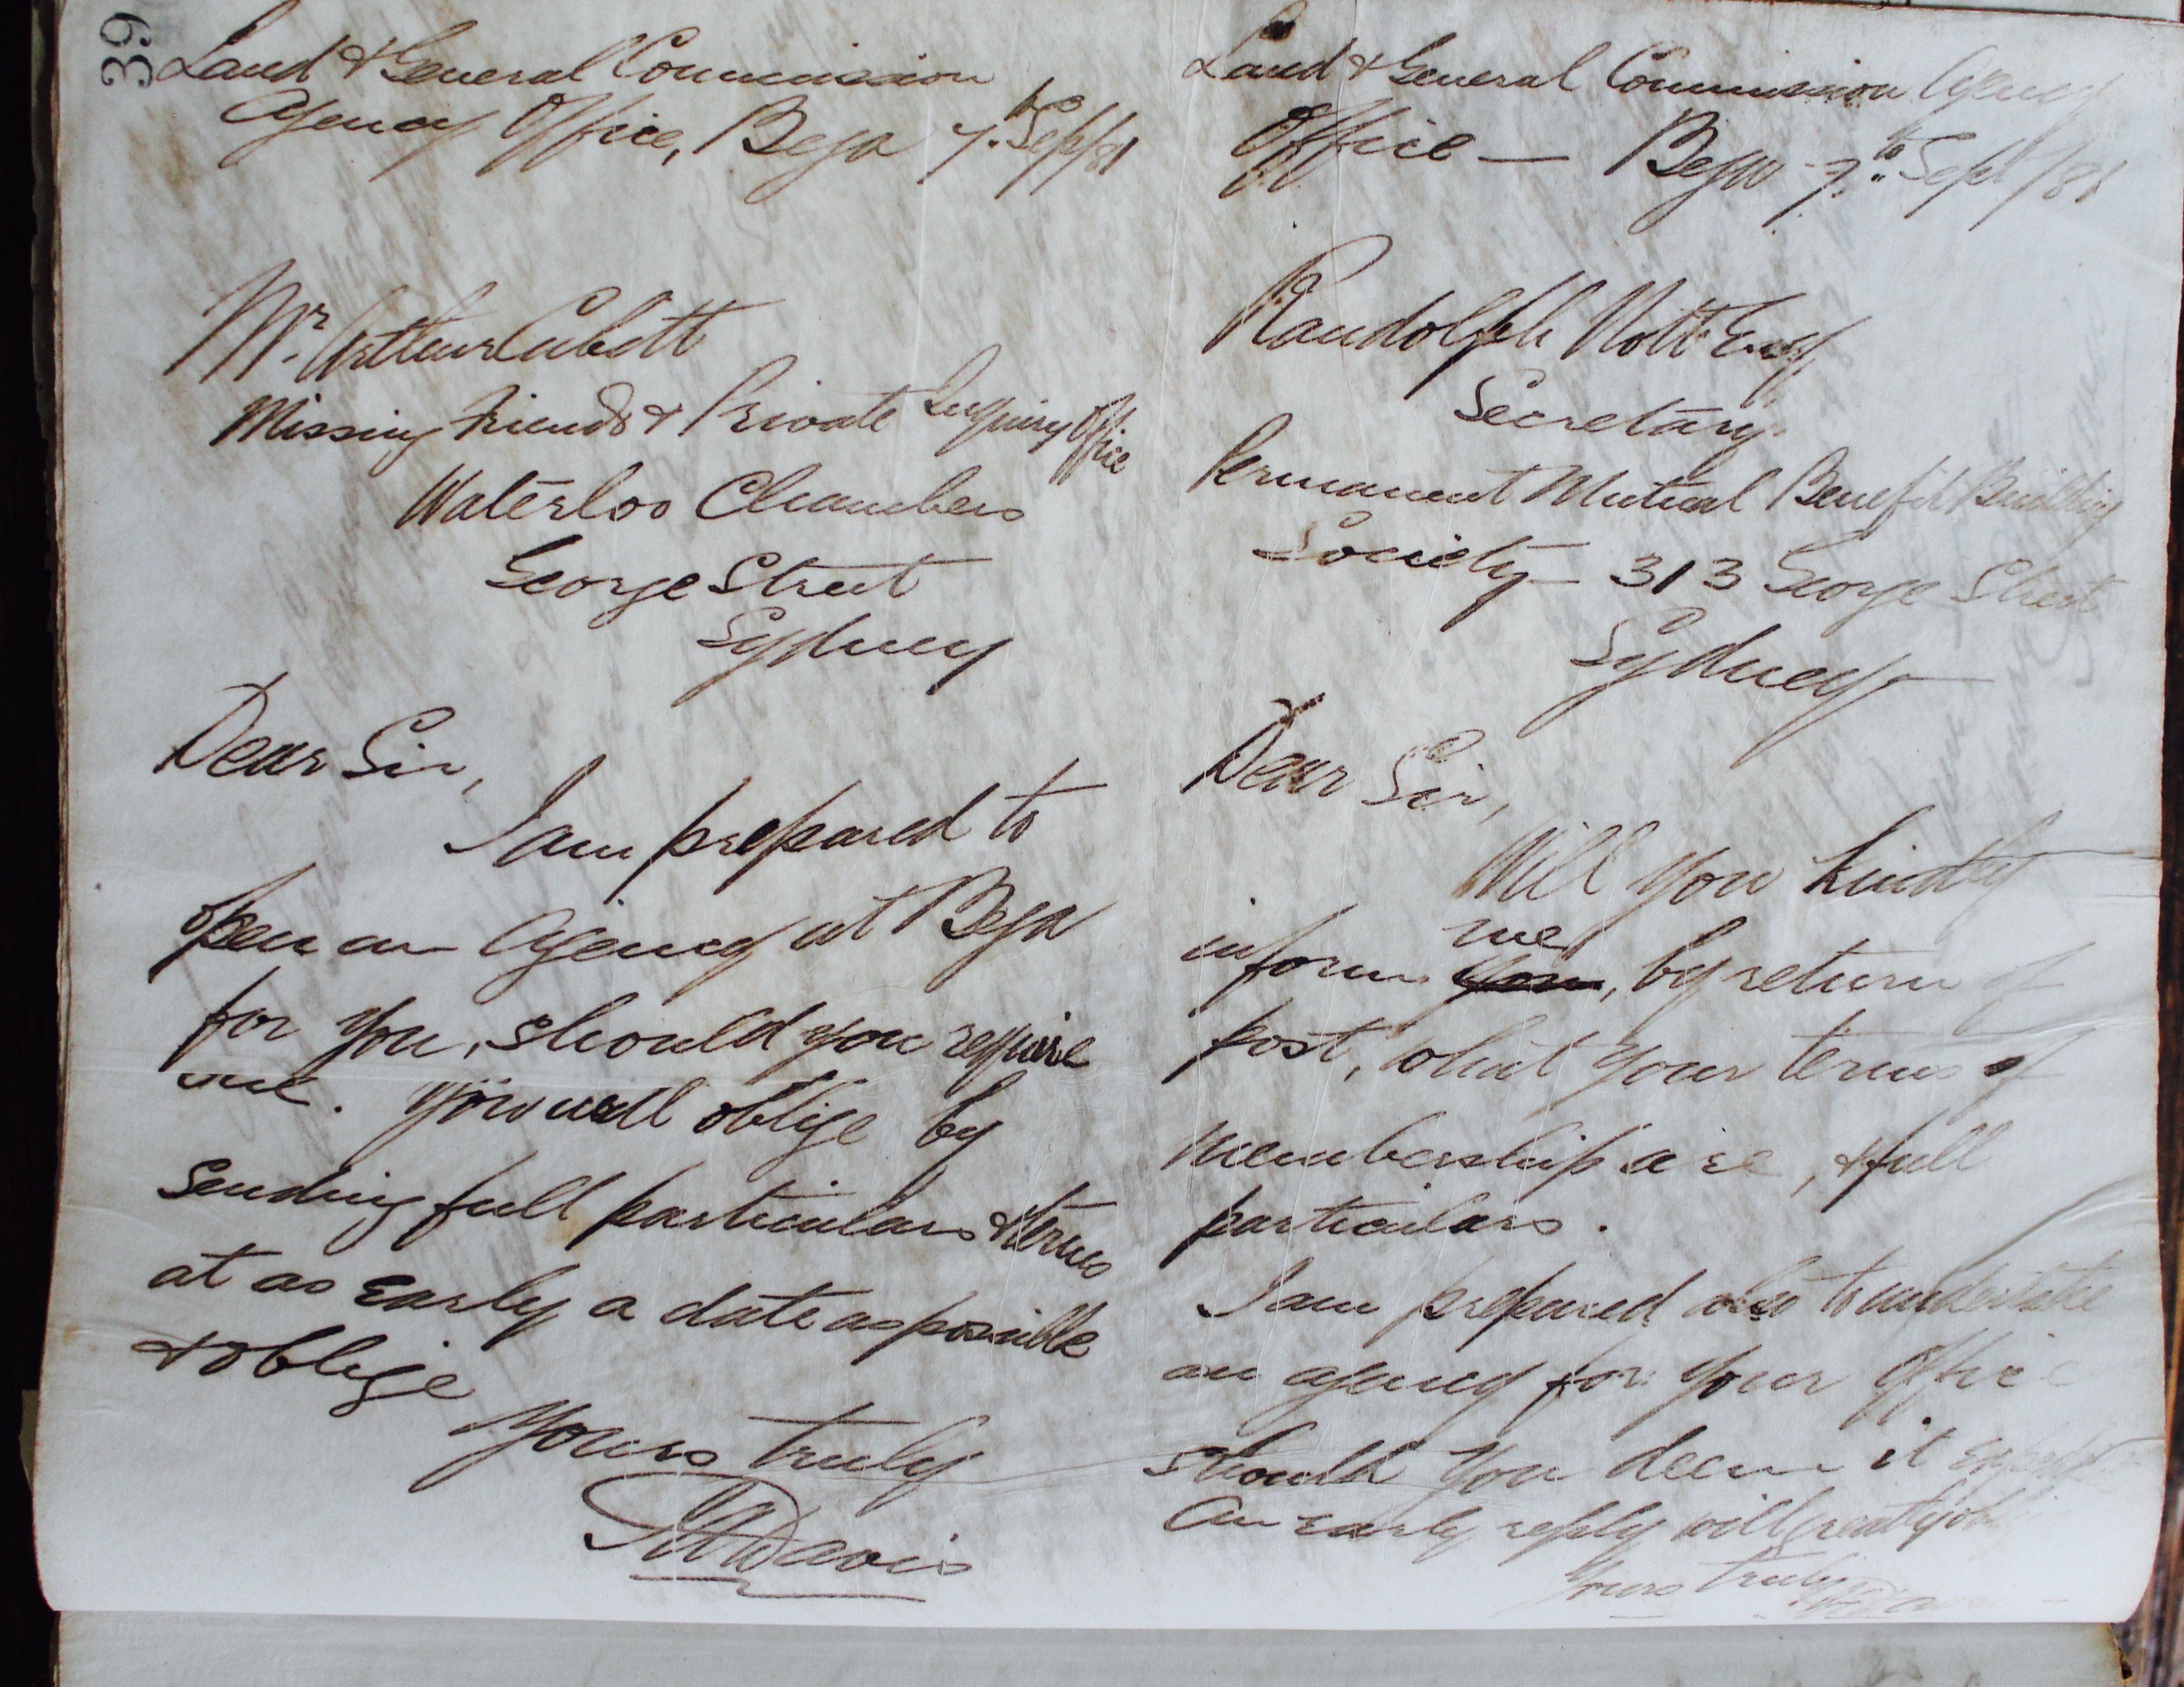 39
Land & General Commission
Agency Office, Bega 7th Sept/81
Mr. Arthur Cubitt
Missing Friends & Private Inquiry Office
Waterloo Chambers
George Street
Sydney
Dear Sir,
I am prepared to
open an Agency at Bega
for you, should you require
one. You will oblige by
sending full particulars & terms
at as early a date as possible
& oblige
Yours truly
Davis
Land & General Commission Agency
Office — Bega 7th Sept/81
Randolph Nott Esq
Secretary
Permanent Mutual Benefit Building
Society — 313 George Street
Sydney
Dear Sir,
Will you kindly
me
inform you, by return of
post, what your terms of
membership are, & full
particulars.
I am prepared also to undertake
an agency for your office
should you deem it
An early reply will greatly
Yours truly